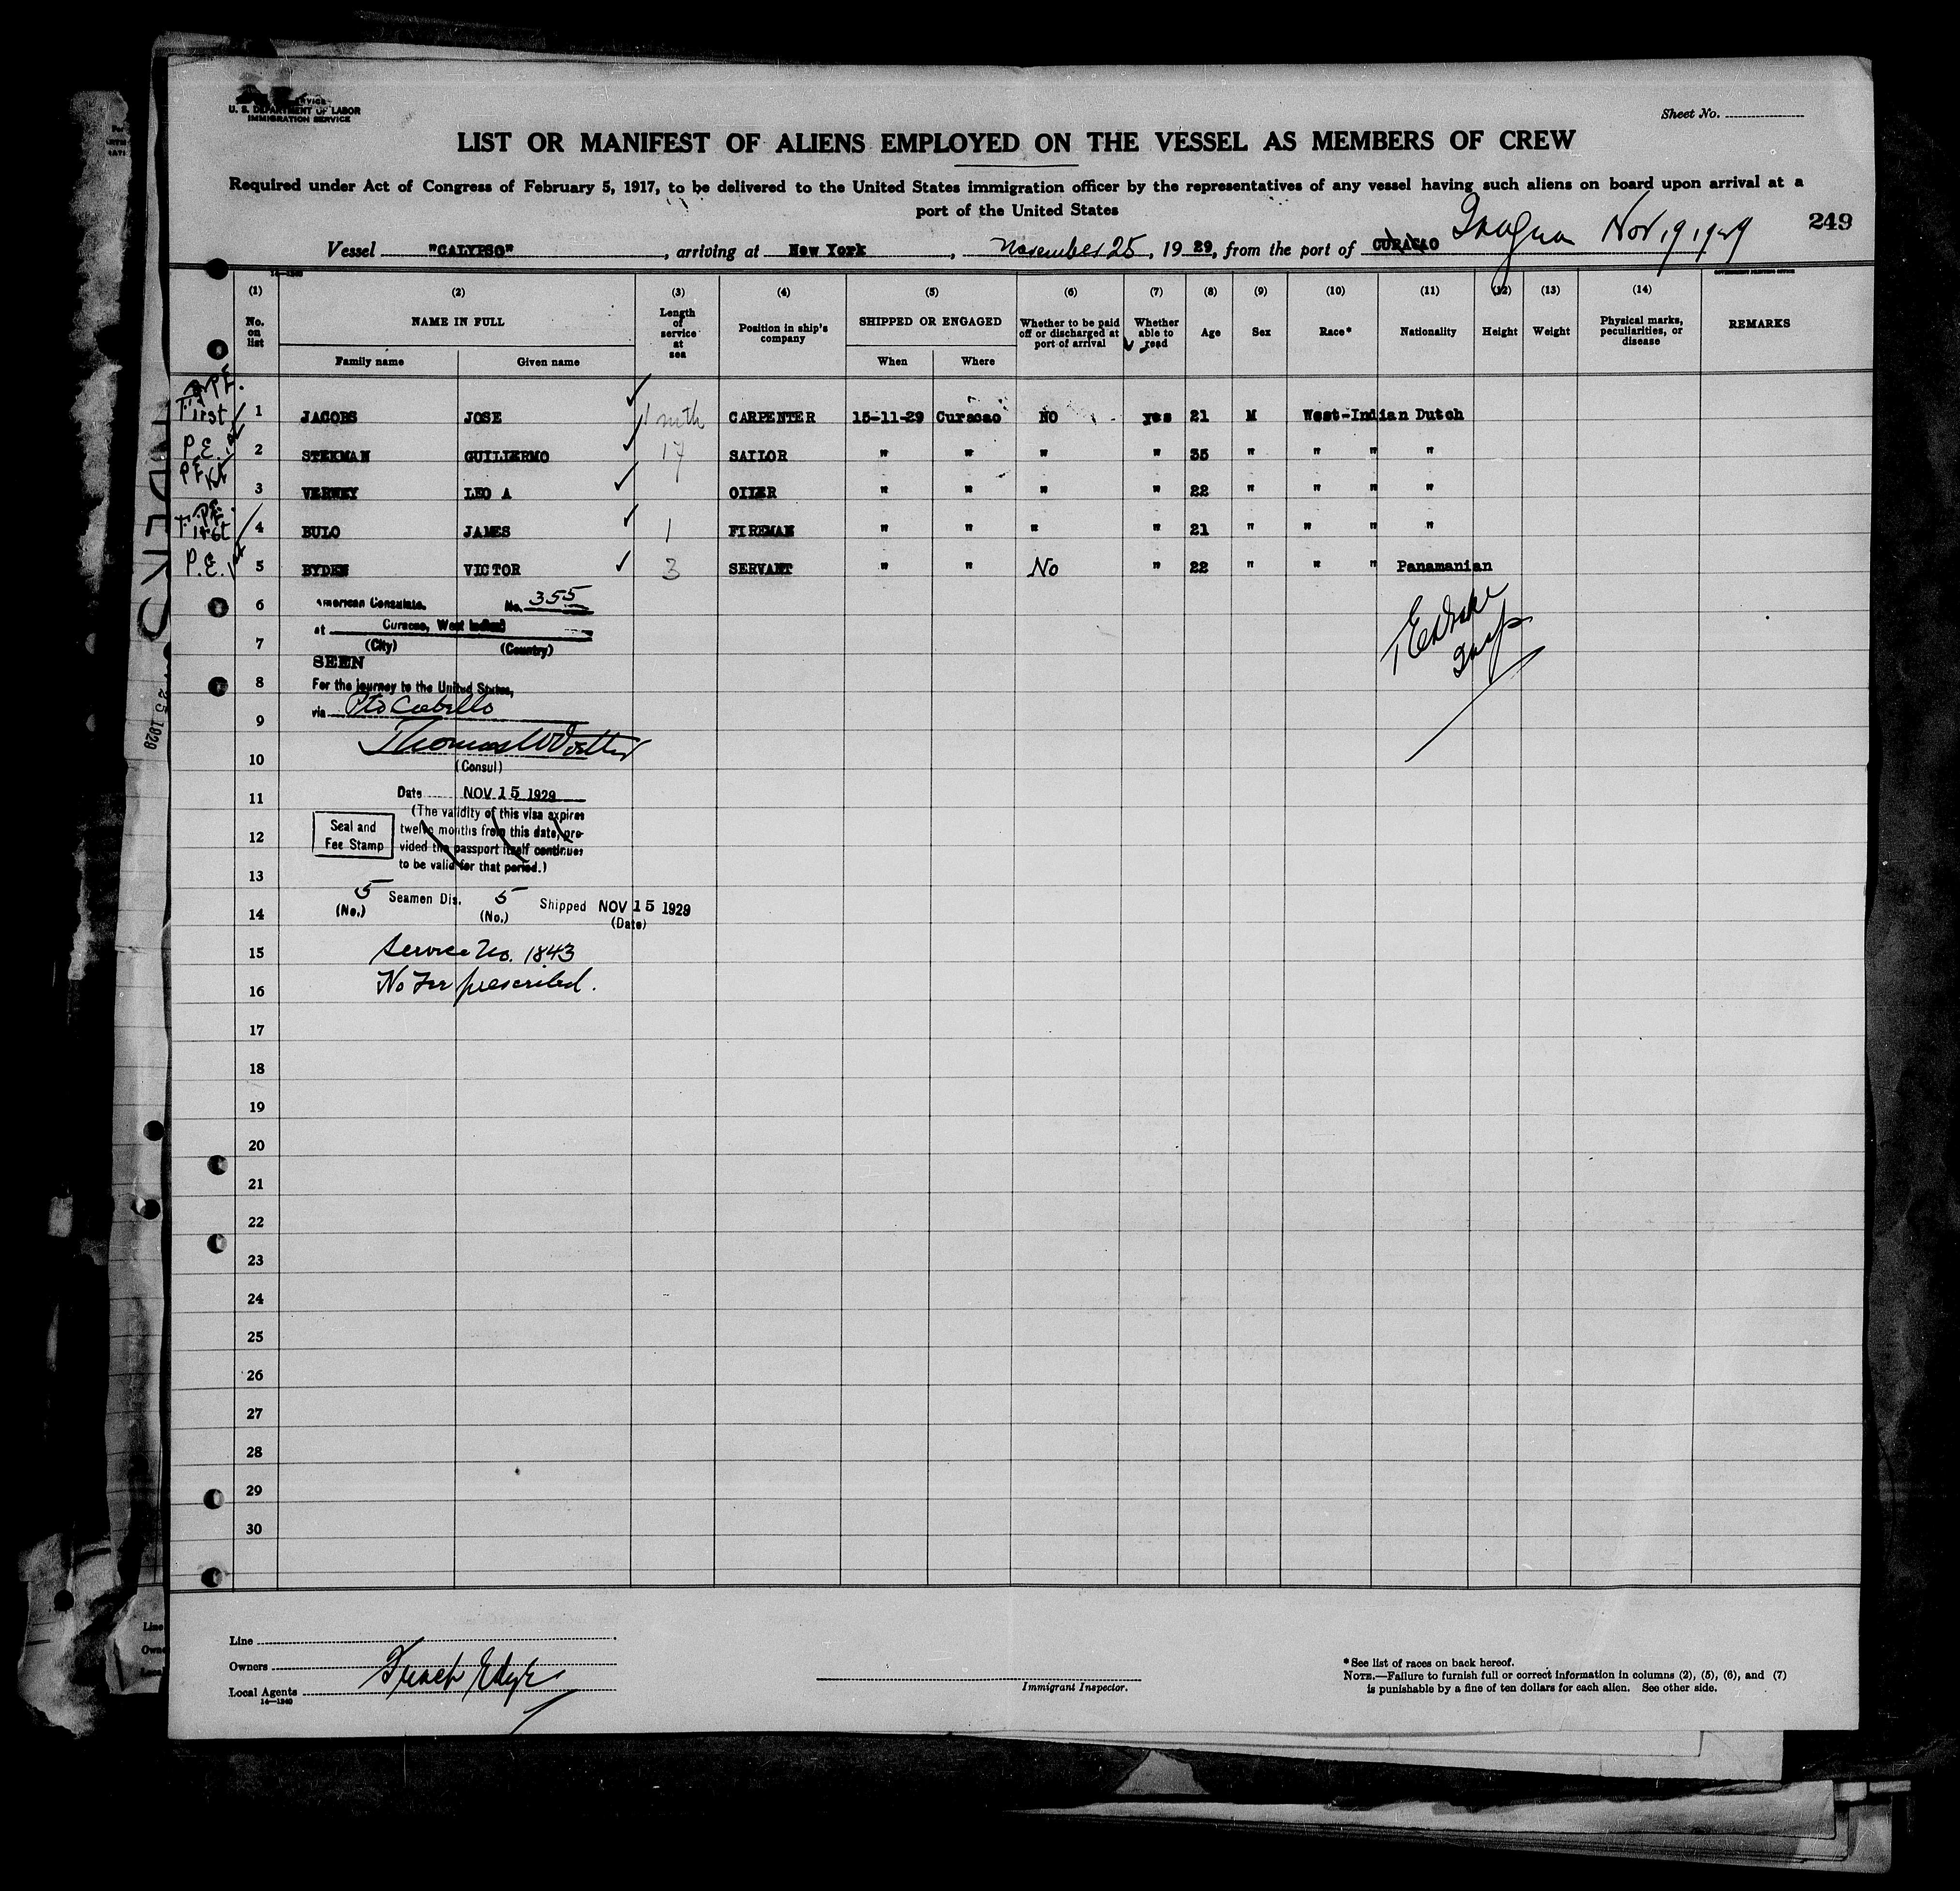 U. S. DEPARTMENT OF LABOR
IMMIGRATION SERVICE
Sheet No.
LIST OR MANIFEST OF ALIENS EMPLOYED ON THE VESSEL AS MEMBERS OF CREW
Required under Act of Congress of February 5, 1917, to be delivered to the United States immigration officer by the representatives of any vessel having such aliens on board upon arrival at a
port of the United States
249
Vessel "CALYPSO", arriving at New York, November 25, 1929, from the port of CURACAO Inagua Nov 19, 1929
14-1240
GOVERNMENT PRINTING OFFICE
(1) (2) (3) (4) (5) (6) (7) (8) (9) (10) (11) (12) (13) (14)
No. on list NAME IN FULL Length of service at sea Position in ship's company SHIPPED OR ENGAGED Whether to be paid off or discharged at port of arrival Whether able to read Age Sex Race* Nationality Height Weight Physical marks, peculiarities, or disease REMARKS
Family name Given name When Where
P.E.
First 1 JACOBS JOSE 1 mth CARPENTER 15-11-29 Curacao NO yes 21 M West-Indian Dutch
P.E. 1st 2 STEKMAN GUILIERMO 17 SAILOR " " " " 35 " " " "
P.E. 1st 3 VERWEY LEO A OILER " " " " 22 " " " "
P.E. First 4 BULO JAMES 1 FIREMAN " " " " 21 " " " "
P.E. 1st 5 BYDEN VICTOR 3 SERVANT " " No " 22 " " " Panamanian
6 American Consulate. No. 355
at Curacao, West Indies
7 (City) (Country)
SEEN
8 For the journey to the United States,
via Pto Cabello
9
10 (Consul)
11 Date NOV 15 1929
(The validity of this visa expires
12 Seal and Fee Stamp twelve months from this date, pro-
vided the passport itself continues
to be valid for that period.)
13
5 Seamen Dis. 5 Shipped NOV 15 1929
14 (No.) (No.) (Date)
15 Service No. 1843
16 No Fee prescribed.
17
18
19
20
21
22
23
24
25
26
27
28
29
30
25 1929
Line
Owners
Local Agents
14-1240
Immigrant Inspector.
*See list of races on back hereof.
NOTE.—Failure to furnish full or correct information in columns (2), (5), (6), and (7)
is punishable by a fine of ten dollars for each alien. See other side.